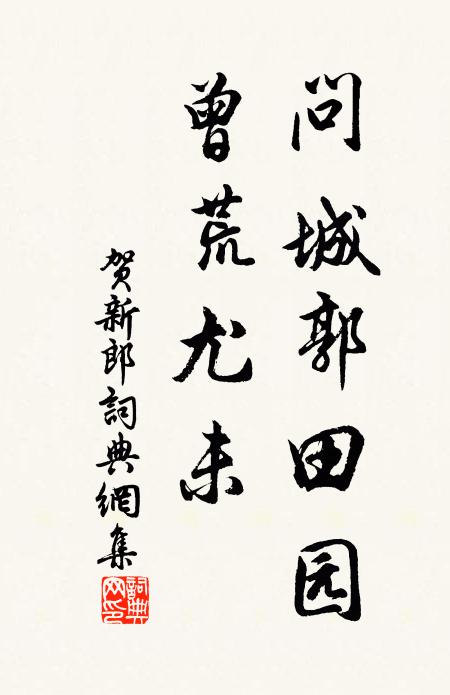 问城郭田园
曾荒尤未
贺新郎詞典網集
詞典网印